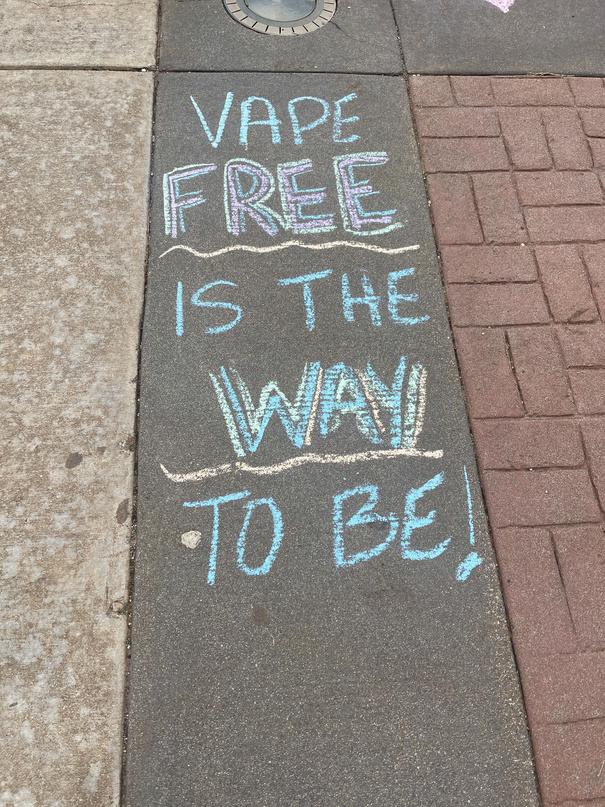 VAPE
FREE
IS THE
WAY
TO BE!